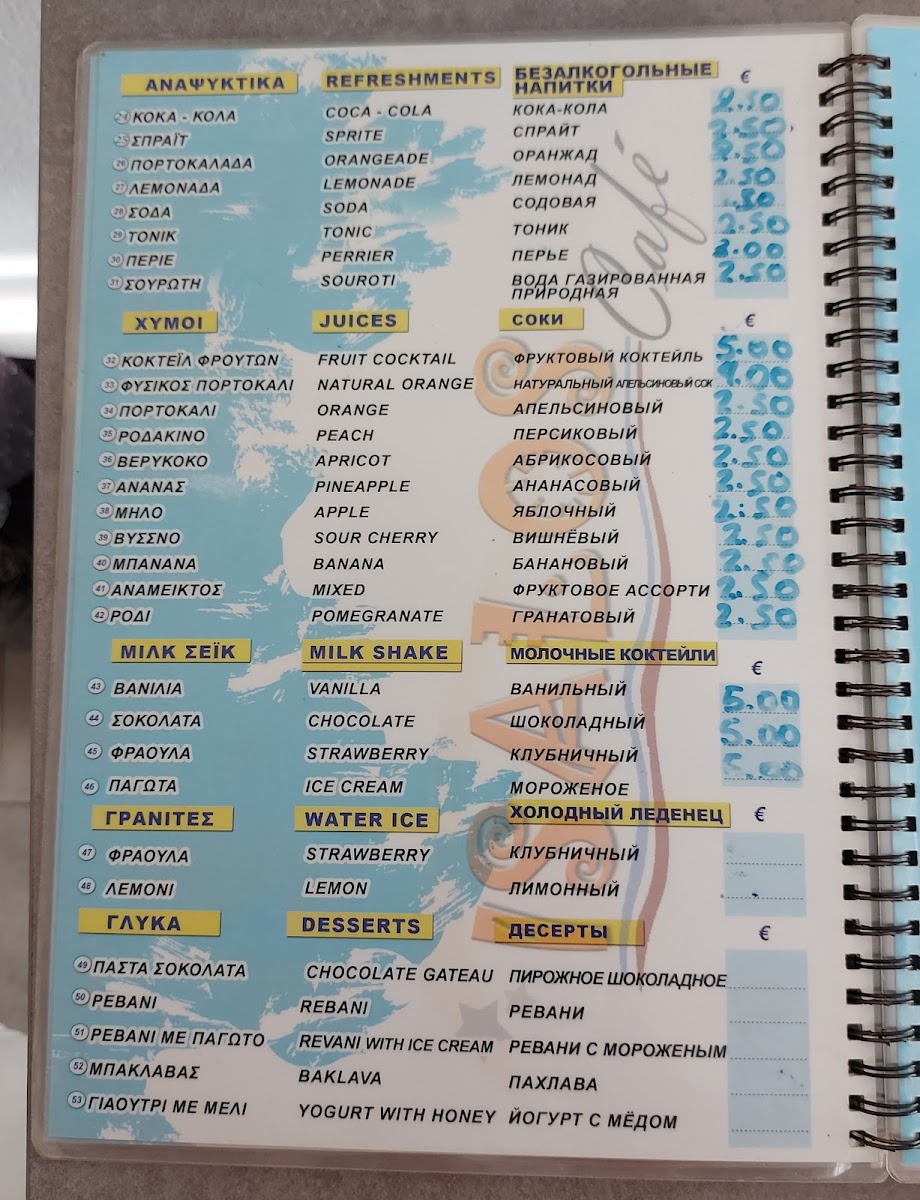 ΑΝΑΨΥΚΤΙΚΑ REFRESHMENTS БЕЗАЛКОГОЛЬНЫЕ НАПИТКИ €
24 ΚΟΚΑ - ΚΟΛΑ COCA - COLA КОКА-КОЛА 2.50
25 ΣΠΡΑΪΤ SPRITE СПРАЙТ 2.50
26 ΠΟΡΤΟΚΑΛΑΔΑ ORANGEADE ОРАНЖАД 2.50
27 ΛΕΜΟΝΑΔΑ LEMONADE ЛЕМОНАД 2.50
28 ΣΟΔΑ SODA СОДОВАЯ
29 ΤΟΝΙΚ TONIC ТОНИК 2.50
30 ΠΕΡΙΕ PERRIER ПЕРЬЕ 3.00
31 ΣΟΥΡΩΤΗ SOUROTI ВОДА ГАЗИРОВАННАЯ 2.50
ПРИРОДНАЯ
ΧΥΜΟΙ JUICES СОКИ €
32 ΚΟΚΤΕΪΛ ΦΡΟΥΤΩΝ FRUIT COCKTAIL ФРУКТОВЫЙ КОКТЕЙЛЬ 5.00
33 ΦΥΣΙΚΟΣ ΠΟΡΤΟΚΑΛΙ NATURAL ORANGE НАТУРАЛЬНЫЙ АПЕЛЬСИНОВЫЙ СОК 4.00
34 ΠΟΡΤΟΚΑΛΙ ORANGE АПЕЛЬСИНОВЫЙ 2.50
35 ΡΟΔΑΚΙΝΟ PEACH ПЕРСИКОВЫЙ 2.50
36 ΒΕΡΥΚΟΚΟ APRICOT АБРИКОСОВЫЙ 2.50
37 ΑΝΑΝΑΣ PINEAPPLE АНАНАСОВЫЙ 2.50
38 ΜΗΛΟ APPLE ЯБЛОЧНЫЙ 2.50
39 ΒΥΣΣΝΟ SOUR CHERRY ВИШНЁВЫЙ 2.50
40 ΜΠΑΝΑΝΑ BANANA БАНАНОВЫЙ 2.50
41 ΑΝΑΜΕΙΚΤΟΣ MIXED ФРУКТОВОЕ АССОРТИ 2.50
42 ΡΟΔΙ POMEGRANATE ГРАНАТОВЫЙ 2.50
ΜΙΛΚ ΣΕΪΚ MILK SHAKE МОЛОЧНЫЕ КОКТЕЙЛИ €
43 ΒΑΝΙΛΙΑ VANILLA ВАНИЛЬНЫЙ 5.00
44 ΣΟΚΟΛΑΤΑ CHOCOLATE ШОКОЛАДНЫЙ 5.00
45 ΦΡΑΟΥΛΑ STRAWBERRY КЛУБНИЧНЫЙ 5.00
46 ΠΑΓΩΤΑ ICE CREAM МОРОЖЕНОЕ
ΓΡΑΝΙΤΕΣ WATER ICE ХОЛОДНЫЙ ЛЕДЕНЕЦ €
47 ΦΡΑΟΥΛΑ STRAWBERRY КЛУБНИЧНЫЙ
48 ΛΕΜΟΝΙ LEMON ЛИМОННЫЙ
ΓΛΥΚΑ DESSERTS ДЕСЕРТЫ €
49 ΠΑΣΤΑ ΣΟΚΟΛΑΤΑ CHOCOLATE GATEAU ПИРОЖНОЕ ШОКОЛАДНОЕ
50 ΡΕΒΑΝΙ REBANI РЕВАНИ
51 ΡΕΒΑΝΙ ΜΕ ΠΑΓΩΤΟ REVANI WITH ICE CREAM РЕВАНИ С МОРОЖЕНЫМ
52 ΜΠΑΚΛΑΒΑΣ BAKLAVA ПАХЛАВА
53 ΓΙΑΟΥΤΡΙ ΜΕ ΜΕΛΙ YOGURT WITH HONEY ЙОГУРТ С МЁДОМ
iSALOS Café